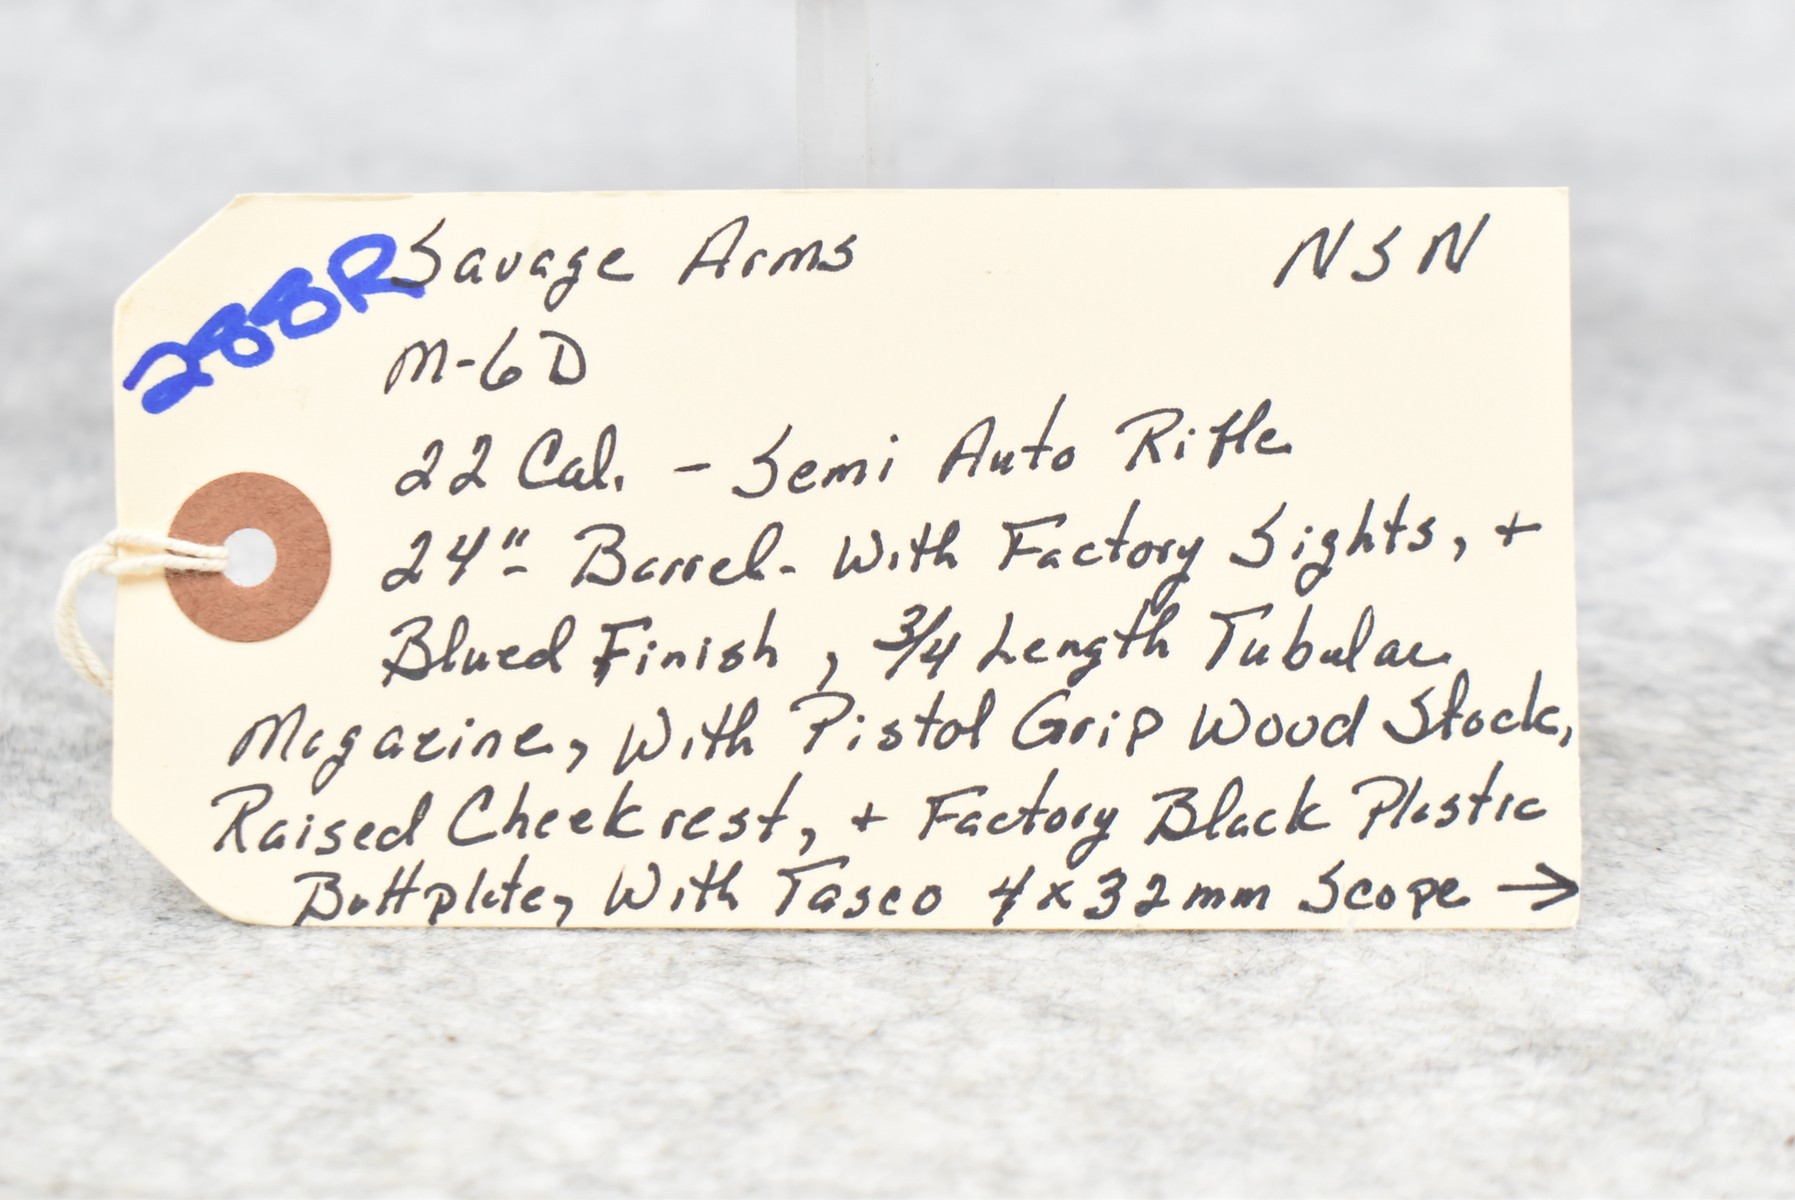 288R
Savage Arms NSN
M-6D
22 Cal. - Semi Auto Rifle
24" Barrel - With Factory Sights, +
Blued Finish, 3/4 Length Tubular
Magazine, With Pistol Grip Wood Stock,
Raised Cheekrest, + Factory Black Plastic
Buttplate, With Tasco 4x32mm Scope →